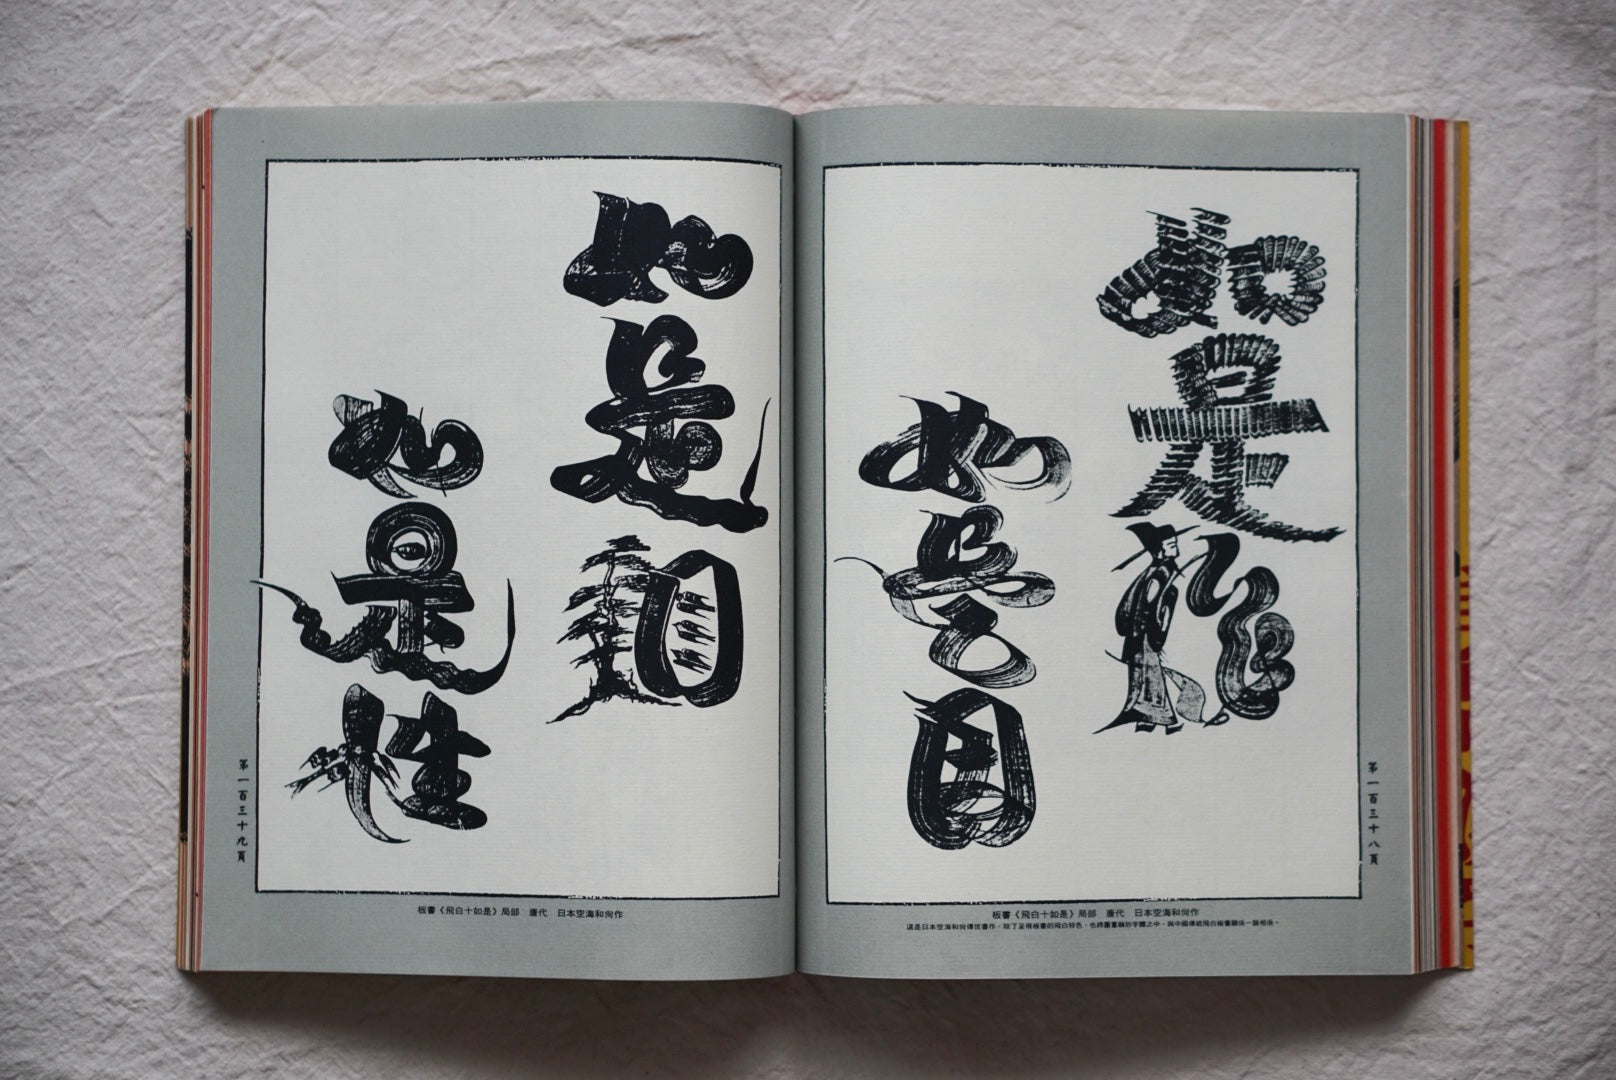 如是作
如是因
板書《飛白十如是》局部　唐代　日本空海和尚作
這是日本空海和尚傳世書作，除了呈現板書的飛白特色，也將圖畫融於字體之中，與中國傳統飛白板書關係一脈相承。
第一百三十八頁
如是相
如是性
板書《飛白十如是》局部　唐代　日本空海和尚作
第一百三十九頁